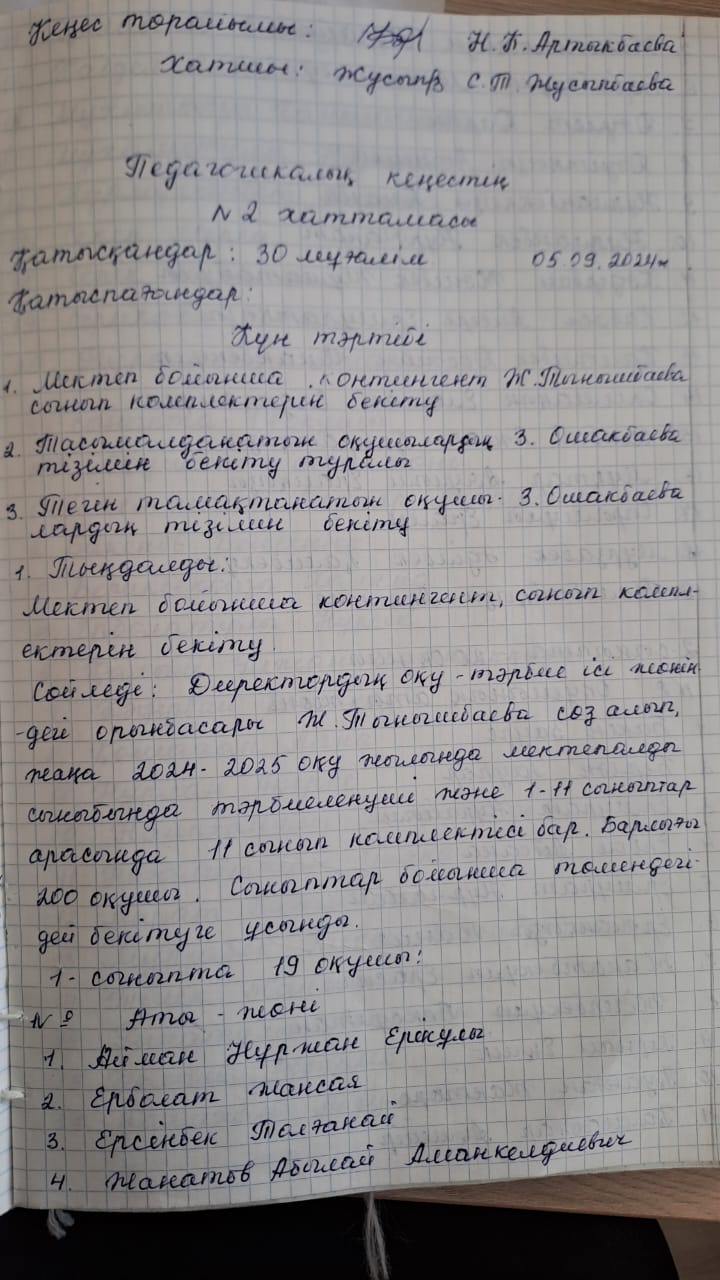 Кеңес төрайымы: Н.К. Артыкбаева
Хатшы: Жусып С.Т. Жусыпбаева
Педагогикалық кеңестің
№2 хаттамасы
Қатысқандар: 30 мұғалім 05.09.2024ж
Қатыспағандар:
Күн тәртібі
1. Мектеп бойынша контингент Ж.Тынышбаева
сынып комплектерін бекіту
2. Тасымалданатын оқушылардың З. Ошакбаева
тізімін бекіту туралы
3. Тегін тамақтанатын оқушы- З. Ошакбаева
лардың тізімін бекіту
1. Тыңдалды:
Мектеп бойынша контингент, сынып компл-
ектерін бекіту.
Сөйледі: Директордың оқу-тәрбие ісі жөнін-
-дегі орынбасары Ж.Тынышбаева сөз алып,
жаңа 2024-2025 оқу жылында мектепалды
сыныбында тәрбиеленуші және 1-11 сыныптар
арасында 11 сынып комплектісі бар. Барлығы
200 оқушы. Сыныптар бойынша төмендегі-
дей бекітуге ұсынды.
1- сыныпта 19 оқушы:
№ Аты-жөні
1. Айман Нұржан Ерікұлы
2. Ерболат Жансая
3. Ерсінбек Толғанай
4. Жанатов Абылай Аманкелдиевич